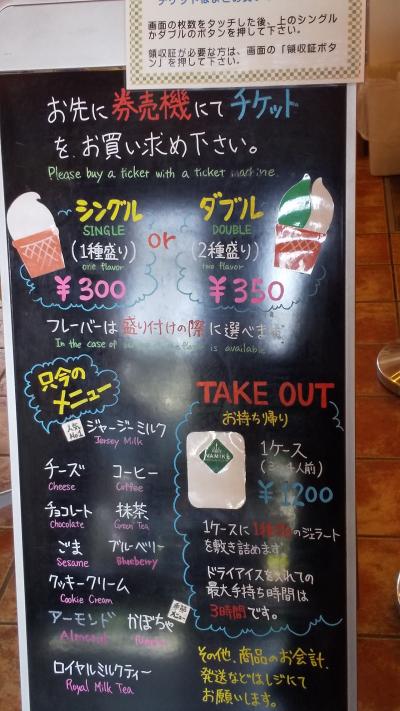 画面の枚数をタッチした後、上のシングル
かダブルのボタンを押して下さい。
領収証が必要な方は、画面の「領収証ボ
タン」を押して下さい。
お先に券売機にてチケット
を、お買い求め下さい。
Please buy a ticket with a ticket machine.
シングル
SINGLE
(1種盛り)
one flavor
¥300
or
ダブル
DOUBLE
(2種盛り)
two flavor
¥350
フレーバーは盛り付けの際に選べます
In the case of is available
只今の
メニュー
人気
No.1
ジャージーミルク
Jersey Milk
チーズ
Cheese
コーヒー
Coffee
チョコレート
Chocolate
抹茶
Green Tea
ごま
Sesame
ブルーベリー
Blueberry
クッキークリーム
Cookie Cream
アーモンド
Almond
かぼちゃ
ロイヤルミルクティー
Royal Milk Tea
TAKE OUT
お持ち帰り
1ケース
¥1200
1ケースに のジェラート
を敷き詰めます
ドライアイスを入れての
最大手持ち時間は
3時間です。
その他、商品のお会計、
発送などはレジにて
お願いします。